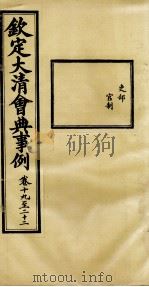 欽定大清會典事例 卷十九至二十二
吏部
官制